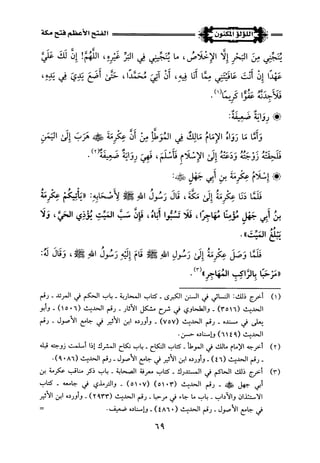 اللؤلؤ المكنون
الفتح الأعظم فتح مكة
يُنَجِّنِي مِنَ الْبَحْرِ إِلَّا الْإِخْلَاصُ، مَا يُنَجِّينِي فِي الْبَرِّ غَيْرُهُ، اللَّهُمَّ! إِنَّ لَكَ عَلَيَّ
عَهْدًا إِنْ أَنْتَ عَافَيْتَنِي مِمَّا أَنَا فِيهِ، أَنْ آتِيَ مُحَمَّدًا، حَتَّى أَضَعَ يَدِيَ فِي يَدِهِ،
فَلَأَجِدَنَّهُ عَفُوًّا كَرِيمًا(١).
رِوَايَةٌ ضَعِيفَةٌ:
وَأَمَّا مَا رَوَاهُ الْإِمَامُ مَالِكٌ فِي الْمُوَطَّأِ مِنْ أَنَّ عِكْرِمَةَ ﷺ هَرَبَ إِلَى الْيَمَنِ
فَلَحِقَتْهُ زَوْجَتُهُ وَدَعَتْهُ إِلَى الْإِسْلَامِ فَأَسْلَمَ، فَهِيَ رِوَايَةٌ ضَعِيفَةٌ(٢).
إِسْلَامُ عِكْرِمَةَ بنِ أَبِي جَهْلٍ:
فَلَمَّا دَنَا عِكْرِمَةُ إِلَى مَكَّةَ، قَالَ رَسُولُ اللهِ ﷺ لِأَصْحَابِهِ: «يَأْتِيكُمْ عِكْرِمَةُ
بنُ أَبِي جَهْلٍ مُؤْمِنًا مُهَاجِرًا، فَلَا تَسُبُّوا أَبَاهُ، فَإِنَّ سَبَّ الْمَيِّتِ يُؤْذِي الْحَيَّ، وَلَا
يَبْلُغُ الْمَيِّتَ».
فَلَمَّا وَصَلَ عِكْرِمَةُ إِلَى رَسُولِ اللهِ ﷺ قَامَ إِلَيْهِ رَسُولُ اللهِ ﷺ، وَقَالَ لَهُ:
«مَرْحَبًا بِالرَّاكِبِ الْمُهَاجِرِ»(٣).
(١) أخرج ذلك: النسائي في السنن الكبرى ـ كتاب المحاربة ـ باب الحكم في المرتد ـ رقم
الحديث (٣٥١٦) ـ والطحاوي في شرح مشكل الآثار ـ رقم الحديث (١٥٠٦) ـ وأبو
يعلى في مسنده ـ رقم الحديث (٧٥٧) ـ وأورده ابن الأثير في جامع الأصول ـ رقم
الحديث (٦١٤٩) وإسناده حسن.
(٢) أخرجه الإمام مالك في الموطأ ـ كتاب النكاح ـ باب نكاح المشرك إذا أسلمت زوجته قبله
ـ رقم الحديث (٤٦) ـ وأورده ابن الأثير في جامع الأصول ـ رقم الحديث (٩٠٨٦).
(٣) أخرج ذلك الحاكم في المستدرك ـ كتاب معرفة الصحابة ـ باب ذكر مناقب عكرمة بن
أبي جهل ﷺ ـ رقم الحديث (٥١٠٣) (٥١٠٧) ـ والترمذي في جامعه ـ كتاب
الاستئذان والآداب ـ باب ما جاء في مرحبا ـ رقم الحديث (٢٩٣٣) ـ وأورده ابن الأثير
في جامع الأصول ـ رقم الحديث (٤٨٦٠) ـ وإسناده ضعيف. =
٦٩